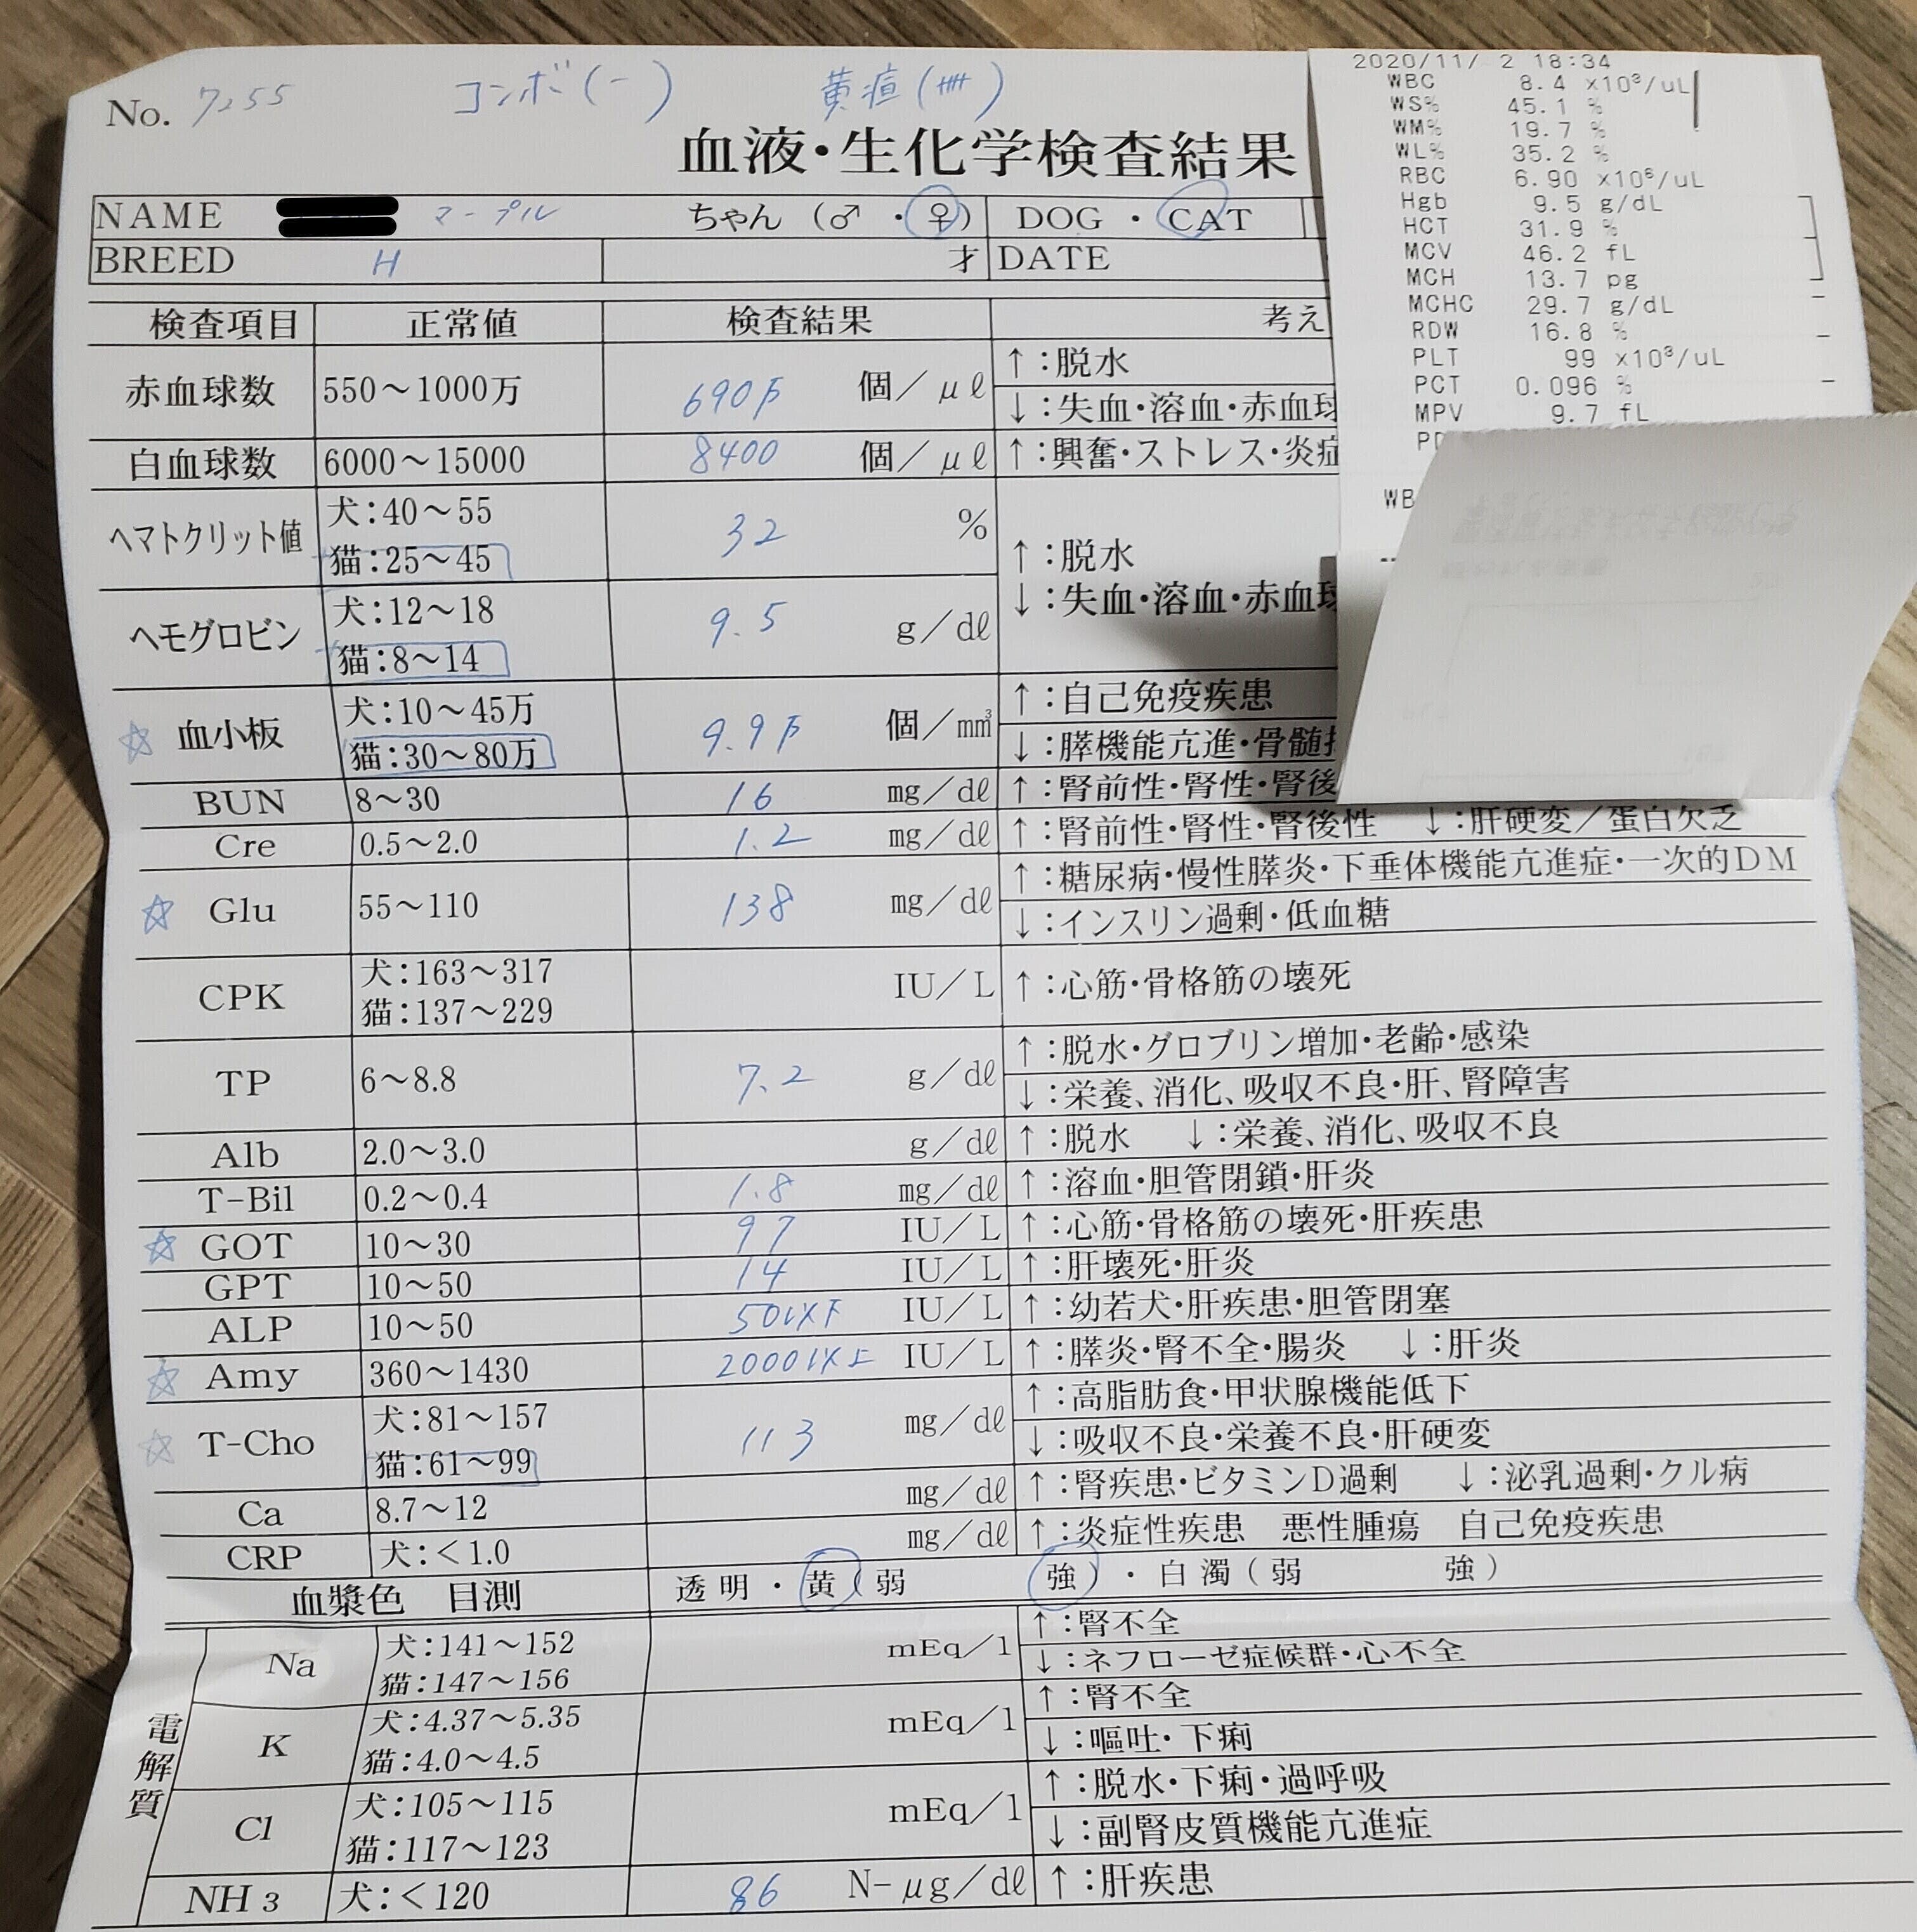 No. 7255 コンボ(-) 黄疸(卌)
血液・生化学検査結果
NAME マープル ちゃん (♂ ・ ♀) DOG ・ CAT
BREED H 才 DATE
検査項目 正常値 検査結果 考え
赤血球数 550〜1000万 690万 個／μℓ ↑:脱水
↓:失血・溶血・赤血球
白血球数 6000〜15000 8400 個／μℓ ↑:興奮・ストレス・炎症
ヘマトクリット値 犬:40〜55 32 %
猫:25〜45 ↑:脱水
↓:失血・溶血・赤血球
ヘモグロビン 犬:12〜18 9.5 g／dℓ
猫:8〜14
☆ 血小板 犬:10〜45万 9.9万 個／mm³ ↑:自己免疫疾患
猫:30〜80万 ↓:膵機能亢進・骨髄
BUN 8〜30 16 mg／dℓ ↑:腎前性・腎性・腎後
Cre 0.5〜2.0 1.2 mg／dℓ ↑:腎前性・腎性・腎後性 ↓:肝硬変／蛋白欠乏
☆ Glu 55〜110 138 mg／dℓ ↑:糖尿病・慢性膵炎・下垂体機能亢進症・一次的DM
↓:インスリン過剰・低血糖
CPK 犬:163〜317 IU／L ↑:心筋・骨格筋の壊死
猫:137〜229
TP 6〜8.8 7.2 g／dℓ ↑:脱水・グロブリン増加・老齢・感染
↓:栄養、消化、吸収不良・肝、腎障害
Alb 2.0〜3.0 g／dℓ ↑:脱水 ↓:栄養、消化、吸収不良
T-Bil 0.2〜0.4 1.8 mg／dℓ ↑:溶血・胆管閉鎖・肝炎
☆ GOT 10〜30 97 IU／L ↑:心筋・骨格筋の壊死・肝疾患
GPT 10〜50 14 IU／L ↑:肝壊死・肝炎
ALP 10〜50 50以下 IU／L ↑:幼若犬・肝疾患・胆管閉塞
☆ Amy 360〜1430 2000以上 IU／L ↑:膵炎・腎不全・腸炎 ↓:肝炎
☆ T-Cho 犬:81〜157 113 mg／dℓ ↑:高脂肪食・甲状腺機能低下
猫:61〜99 ↓:吸収不良・栄養不良・肝硬変
Ca 8.7〜12 mg／dℓ ↑:腎疾患・ビタミンD過剰 ↓:泌乳過剰・クル病
CRP 犬:＜1.0 mg／dℓ ↑:炎症性疾患 悪性腫瘍 自己免疫疾患
血漿色 目測 透明・黄(弱 強)・白濁(弱 強)
電解質
Na 犬:141〜152 mEq／l ↑:腎不全
猫:147〜156 ↓:ネフローゼ症候群・心不全
K 犬:4.37〜5.35 mEq／l ↑:腎不全
猫:4.0〜4.5 ↓:嘔吐・下痢
Cl 犬:105〜115 mEq／l ↑:脱水・下痢・過呼吸
猫:117〜123 ↓:副腎皮質機能亢進症
NH3 犬:＜120 86 N-μg／dℓ ↑:肝疾患
2020/11/ 2 18:34
WBC 8.4 ×10³/uL
WS% 45.1 %
WM% 19.7 %
WL% 35.2 %
RBC 6.90 ×10⁶/uL
Hgb 9.5 g/dL
HCT 31.9 %
MCV 46.2 fL
MCH 13.7 pg
MCHC 29.7 g/dL
RDW 16.8 %
PLT 99 ×10³/uL
PCT 0.096 %
MPV 9.7 fL
PD
WB